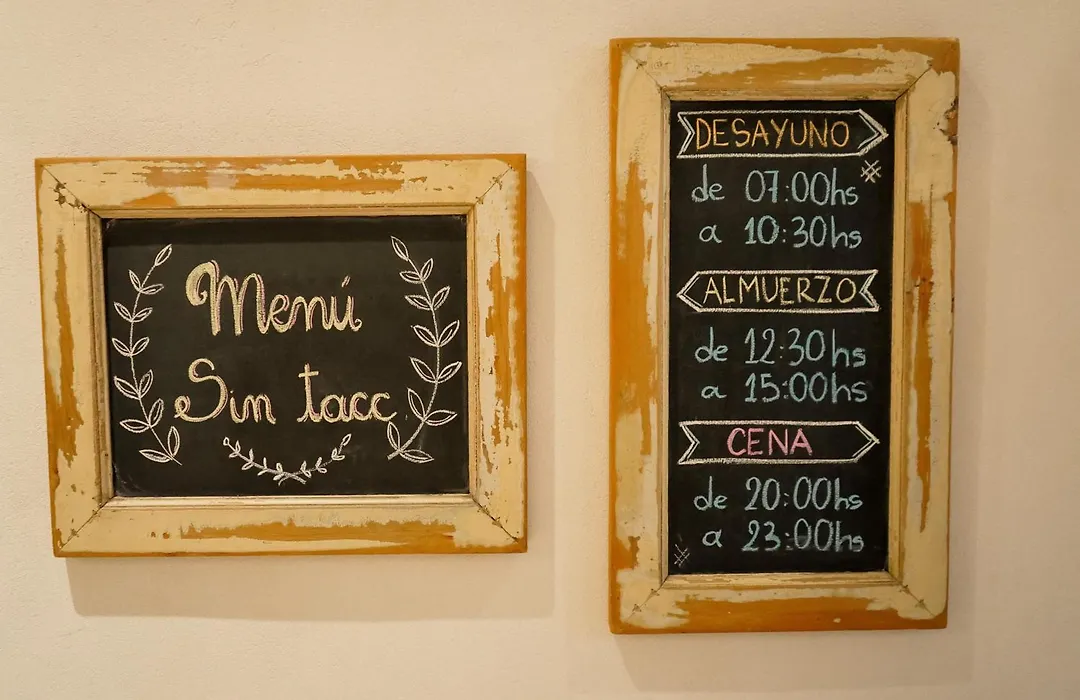 Menú
Sin tacc
DESAYUNO
de 07:00hs
a 10:30hs
ALMUERZO
de 12:30hs
a 15:00hs
CENA
de 20:00hs
a 23:00hs